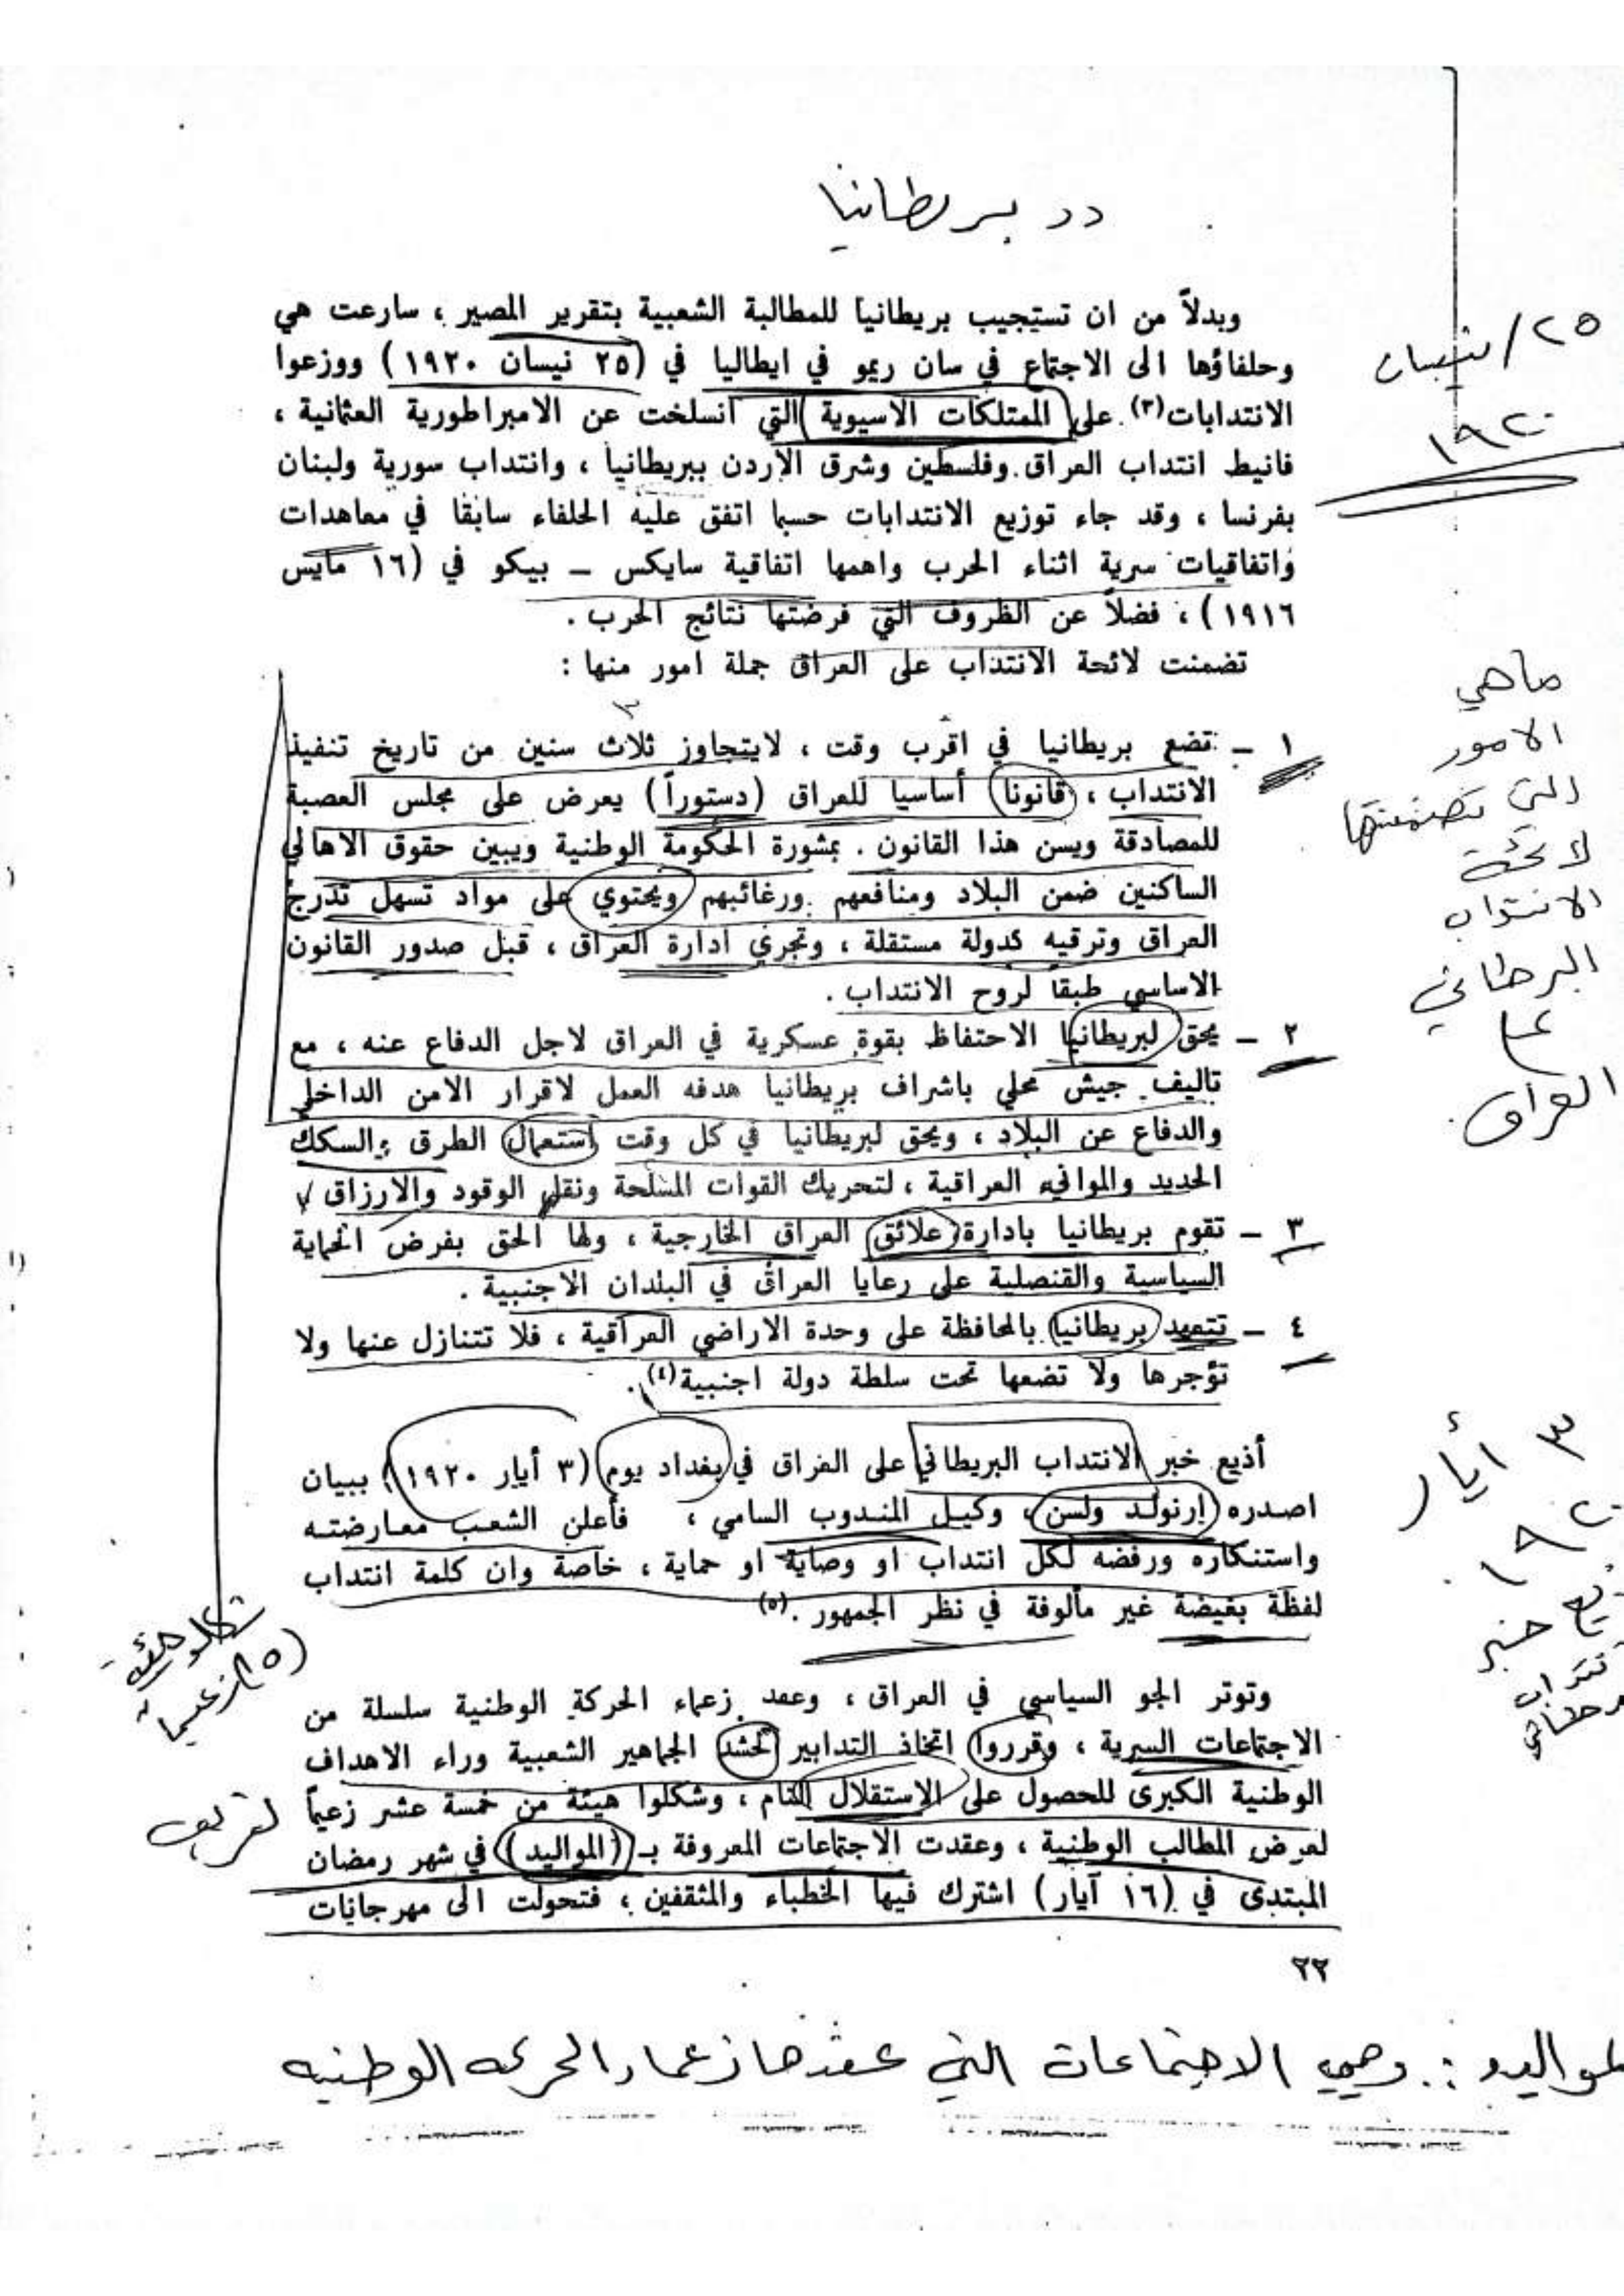 دد بريطانيا
وبدلاً من ان تستجيب بريطانيا للمطالبة الشعبية بتقرير المصير ، سارعت هي
وحلفاؤها الى الاجتماع في سان ريمو في ايطاليا في (٢٥ نيسان ١٩٢٠) ووزعوا
الانتدابات(٣) على الممتلكات الاسيوية التي انسلخت عن الامبراطورية العثمانية ،
فانيط انتداب العراق وفلسطين وشرق الأردن ببريطانيا ، وانتداب سورية ولبنان
بفرنسا ، وقد جاء توزيع الانتدابات حسبما اتفق عليه الحلفاء سابقا في معاهدات
واتفاقيات سرية اثناء الحرب واهمها اتفاقية سايكس – بيكو في (١٦ مايس
١٩١٦) ، فضلاً عن الظروف التي فرضتها نتائج الحرب .
تضمنت لائحة الانتداب على العراق جملة امور منها :
١ – تضع بريطانيا في اقرب وقت ، لايتجاوز ثلاث سنين من تاريخ تنفيذ
الانتداب ، قانونا أساسيا للعراق (دستوراً) يعرض على مجلس العصبة
للمصادقة ويسن هذا القانون . بمشورة الحكومة الوطنية ويبين حقوق الاهالي
الساكنين ضمن البلاد ومنافعهم ورغائبهم ويحتوي على مواد تسهل تدرج
العراق وترقيه كدولة مستقلة ، وتجري ادارة العراق ، قبل صدور القانون
الاساسي طبقاً لروح الانتداب .
٢ – يحق لبريطانيا الاحتفاظ بقوة عسكرية في العراق لاجل الدفاع عنه ، مع
تاليف جيش محلي باشراف بريطانيا هدفه العمل لاقرار الامن الداخلي
والدفاع عن البلاد ، ويحق لبريطانيا في كل وقت استعمال الطرق والسكك
الحديد والموانيء العراقية ، لتحريك القوات المسلحة ونقل الوقود والارزاق
٣ – تقوم بريطانيا بادارة علائق العراق الخارجية ، ولها الحق بفرض الحماية
السياسية والقنصلية على رعايا العراق في البلدان الاجنبية .
٤ – تتعهد بريطانيا بالمحافظة على وحدة الاراضي العراقية ، فلا تتنازل عنها ولا
تؤجرها ولا تضعها تحت سلطة دولة اجنبية(٤) .
أذيع خبر الانتداب البريطاني على العراق في بغداد يوم (٣ أيار ١٩٢٠) ببيان
اصدره ارنولد ولسن ، وكيل المندوب السامي ، فأعلن الشعب معارضته
واستنكاره ورفضه لكل انتداب او وصاية او حماية ، خاصة وان كلمة انتداب
لفظة بغيضة غير مألوفة في نظر الجمهور .(٥)
وتوتر الجو السياسي في العراق ، وعقد زعماء الحركة الوطنية سلسلة من
الاجتماعات السرية ، وقرروا اتخاذ التدابير لحشد الجماهير الشعبية وراء الاهداف
الوطنية الكبرى للحصول على الاستقلال التام ، وشكلوا هيئة من خمسة عشر زعيماً
لعرض المطالب الوطنية ، وعقدت الاجتماعات المعروفة بـ (المواليد) في شهر رمضان
المبتدى في (١٦ آيار) اشترك فيها الخطباء والمثقفين ، فتحولت الى مهرجانات
٢٢
المواليد : وهي الاجتماعات التي عقدها زعماء الحركه الوطنيه
٢٥/نيسان
١٩٢٠
ماهي
الامور
التي تضمنتها
لائحة
الانتداب
البرطاني
على
العراق
٣ أيار
١٩٢٠
خبر
تعريف